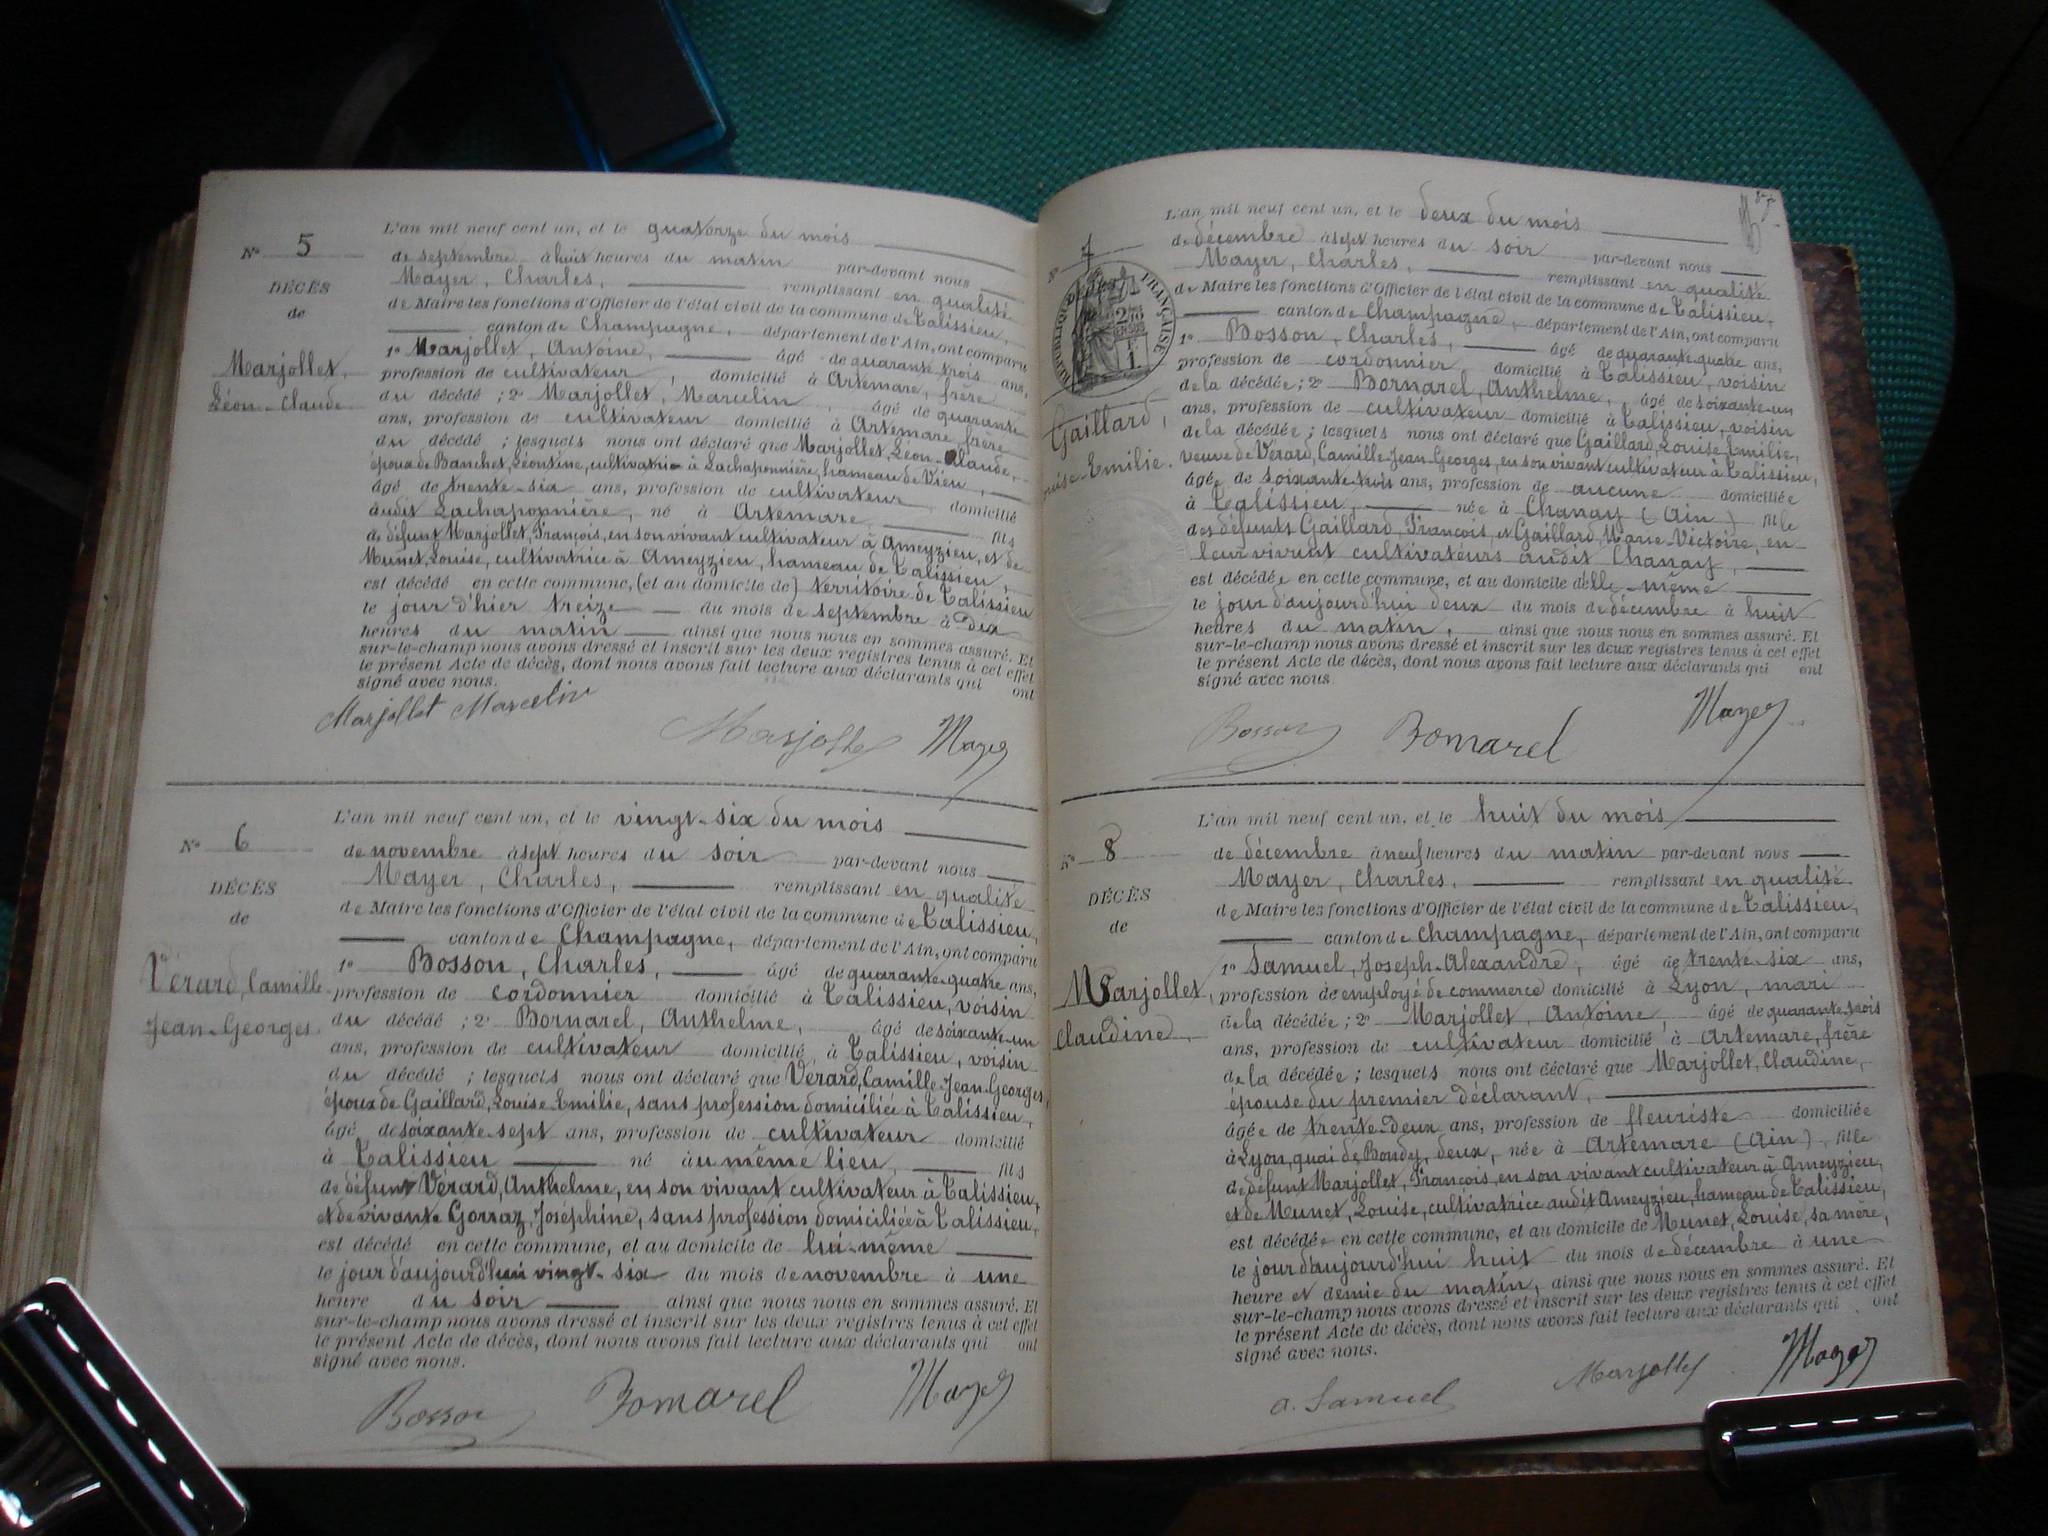 N° 5
DÉCÈS
de
Marjollet,
Léon-Claude
L'an mil neuf cent un, et le quatorze du mois
de septembre à huit heures du matin par-devant nous
Mayer, Charles, remplissant en qualité
de Maire les fonctions d'Officier de l'état civil de la commune de Talissieu,
canton de Champagne, département de l'Ain, ont comparu
1° Marjollet, Antoine, âgé de quarante trois ans,
profession de cultivateur, domicilié à Artemare, frère
du décédé ; 2° Marjollet, Marcelin, âgé de quarante
ans, profession de cultivateur domicilié à Artemare, frère
du décédé ; lesquels nous ont déclaré que Marjollet, Léon-Claude,
époux de Banchet, Léontine, cultivatrice à Lachaponnière, hameau de Vieu,
âgé de trente-six ans, profession de cultivateur domicilié
audit Lachaponnière, né à Artemare, fils
de défunt Marjollet, François, en son vivant cultivateur à Ameyzieu, et de
Munet, Louise, cultivatrice à Ameyzieu, hameau de Talissieu,
est décédé en cette commune, (et au domicile de) territoire de Talissieu
le jour d'hier treize du mois de septembre à dix
heures du matin ainsi que nous nous en sommes assuré. Et
sur-le-champ nous avons dressé et inscrit sur les deux registres tenus à cet effet
le présent Acte de décès, dont nous avons fait lecture aux déclarants qui ont
signé avec nous.
Marjollet Marcelin
Marjollet Mayer
N° 6
DÉCÈS
de
Vérard, Camille-
Jean-Georges.
L'an mil neuf cent un, et le vingt-six du mois
de novembre à sept heures du soir par-devant nous
Mayer, Charles, remplissant en qualité
de Maire les fonctions d'Officier de l'état civil de la commune de Talissieu,
canton de Champagne, département de l'Ain, ont comparu
1° Bosson, Charles, âgé de quarante-quatre ans,
profession de cordonnier domicilié à Talissieu, voisin
du décédé ; 2° Bornarel, Anthelme, âgé de soixante-un
ans, profession de cultivateur domicilié à Talissieu, voisin
du décédé ; lesquels nous ont déclaré que Vérard, Camille-Jean-Georges,
époux de Gaillard, Louise-Emilie, sans profession domiciliée à Talissieu,
âgé de soixante-sept ans, profession de cultivateur domicilié
à Talissieu né au même lieu, fils
de défunt Vérard, Anthelme, en son vivant cultivateur à Talissieu,
et de vivante Gorraz, Joséphine, sans profession domiciliée à Talissieu,
est décédé en cette commune, et au domicile de lui-même
le jour d'aujourd'hui vingt-six du mois de novembre à une
heure du soir ainsi que nous nous en sommes assuré. Et
sur-le-champ nous avons dressé et inscrit sur les deux registres tenus à cet effet
le présent Acte de décès, dont nous avons fait lecture aux déclarants qui ont
signé avec nous.
Bosson Bornarel Mayer
N° 7
RÉPUBLIQUE FRANÇAISE
Gaillard,
Louise-Emilie.
L'an mil neuf cent un, et le deux du mois
de décembre à sept heures du soir par-devant nous
Mayer, Charles, remplissant en qualité
de Maire les fonctions d'Officier de l'état civil de la commune de Talissieu,
canton de Champagne, département de l'Ain, ont comparu
1° Bosson, Charles, âgé de quarante-quatre ans,
profession de cordonnier domicilié à Talissieu, voisin
de la décédée ; 2° Bornarel, Anthelme, âgé de soixante-un
ans, profession de cultivateur domicilié à Talissieu, voisin
de la décédée ; lesquels nous ont déclaré que Gaillard, Louise-Emilie,
veuve de Vérard, Camille-Jean-Georges, en son vivant cultivateur à Talissieu,
âgée de soixante-trois ans, profession de aucune domiciliée
à Talissieu, née à Chanay (Ain) fille
des défunts Gaillard, François, et Gaillard, Marie-Victoire, en
leur vivant cultivateurs audit Chanay,
est décédée en cette commune, et au domicile d'elle-même
le jour d'aujourd'hui deux du mois de décembre à huit
heures du matin, ainsi que nous nous en sommes assuré. Et
sur-le-champ nous avons dressé et inscrit sur les deux registres tenus à cet effet
le présent Acte de décès, dont nous avons fait lecture aux déclarants qui ont
signé avec nous
Bosson Bornarel Mayer
N° 8
DÉCÈS
de
Marjollet,
Claudine
L'an mil neuf cent un, et le huit du mois
de décembre à neuf heures du matin par-devant nous
Mayer, Charles, remplissant en qualité
de Maire les fonctions d'Officier de l'état civil de la commune de Talissieu,
canton de Champagne, département de l'Ain, ont comparu
1° Samuel, Joseph-Alexandre, âgé de trente-six ans,
profession de employé de commerce domicilié à Lyon, mari
de la décédée ; 2° Marjollet, Antoine, âgé de quarante-trois
ans, profession de cultivateur domicilié à Artemare, frère
de la décédée ; lesquels nous ont déclaré que Marjollet, Claudine,
épouse du premier déclarant,
âgée de trente-deux ans, profession de fleuriste domiciliée
à Lyon, quai de Bondy, deux, née à Artemare (Ain), fille
de défunt Marjollet, François, en son vivant cultivateur à Ameyzieu,
et de Munet, Louise, cultivatrice audit Ameyzieu, hameau de Talissieu,
est décédée en cette commune, et au domicile de Munet, Louise, sa mère,
le jour d'aujourd'hui huit du mois de décembre à une
heure et demie du matin, ainsi que nous nous en sommes assuré. Et
sur-le-champ nous avons dressé et inscrit sur les deux registres tenus à cet effet
le présent Acte de décès, dont nous avons fait lecture aux déclarants qui ont
signé avec nous.
a. Samuel Marjollet Mayer